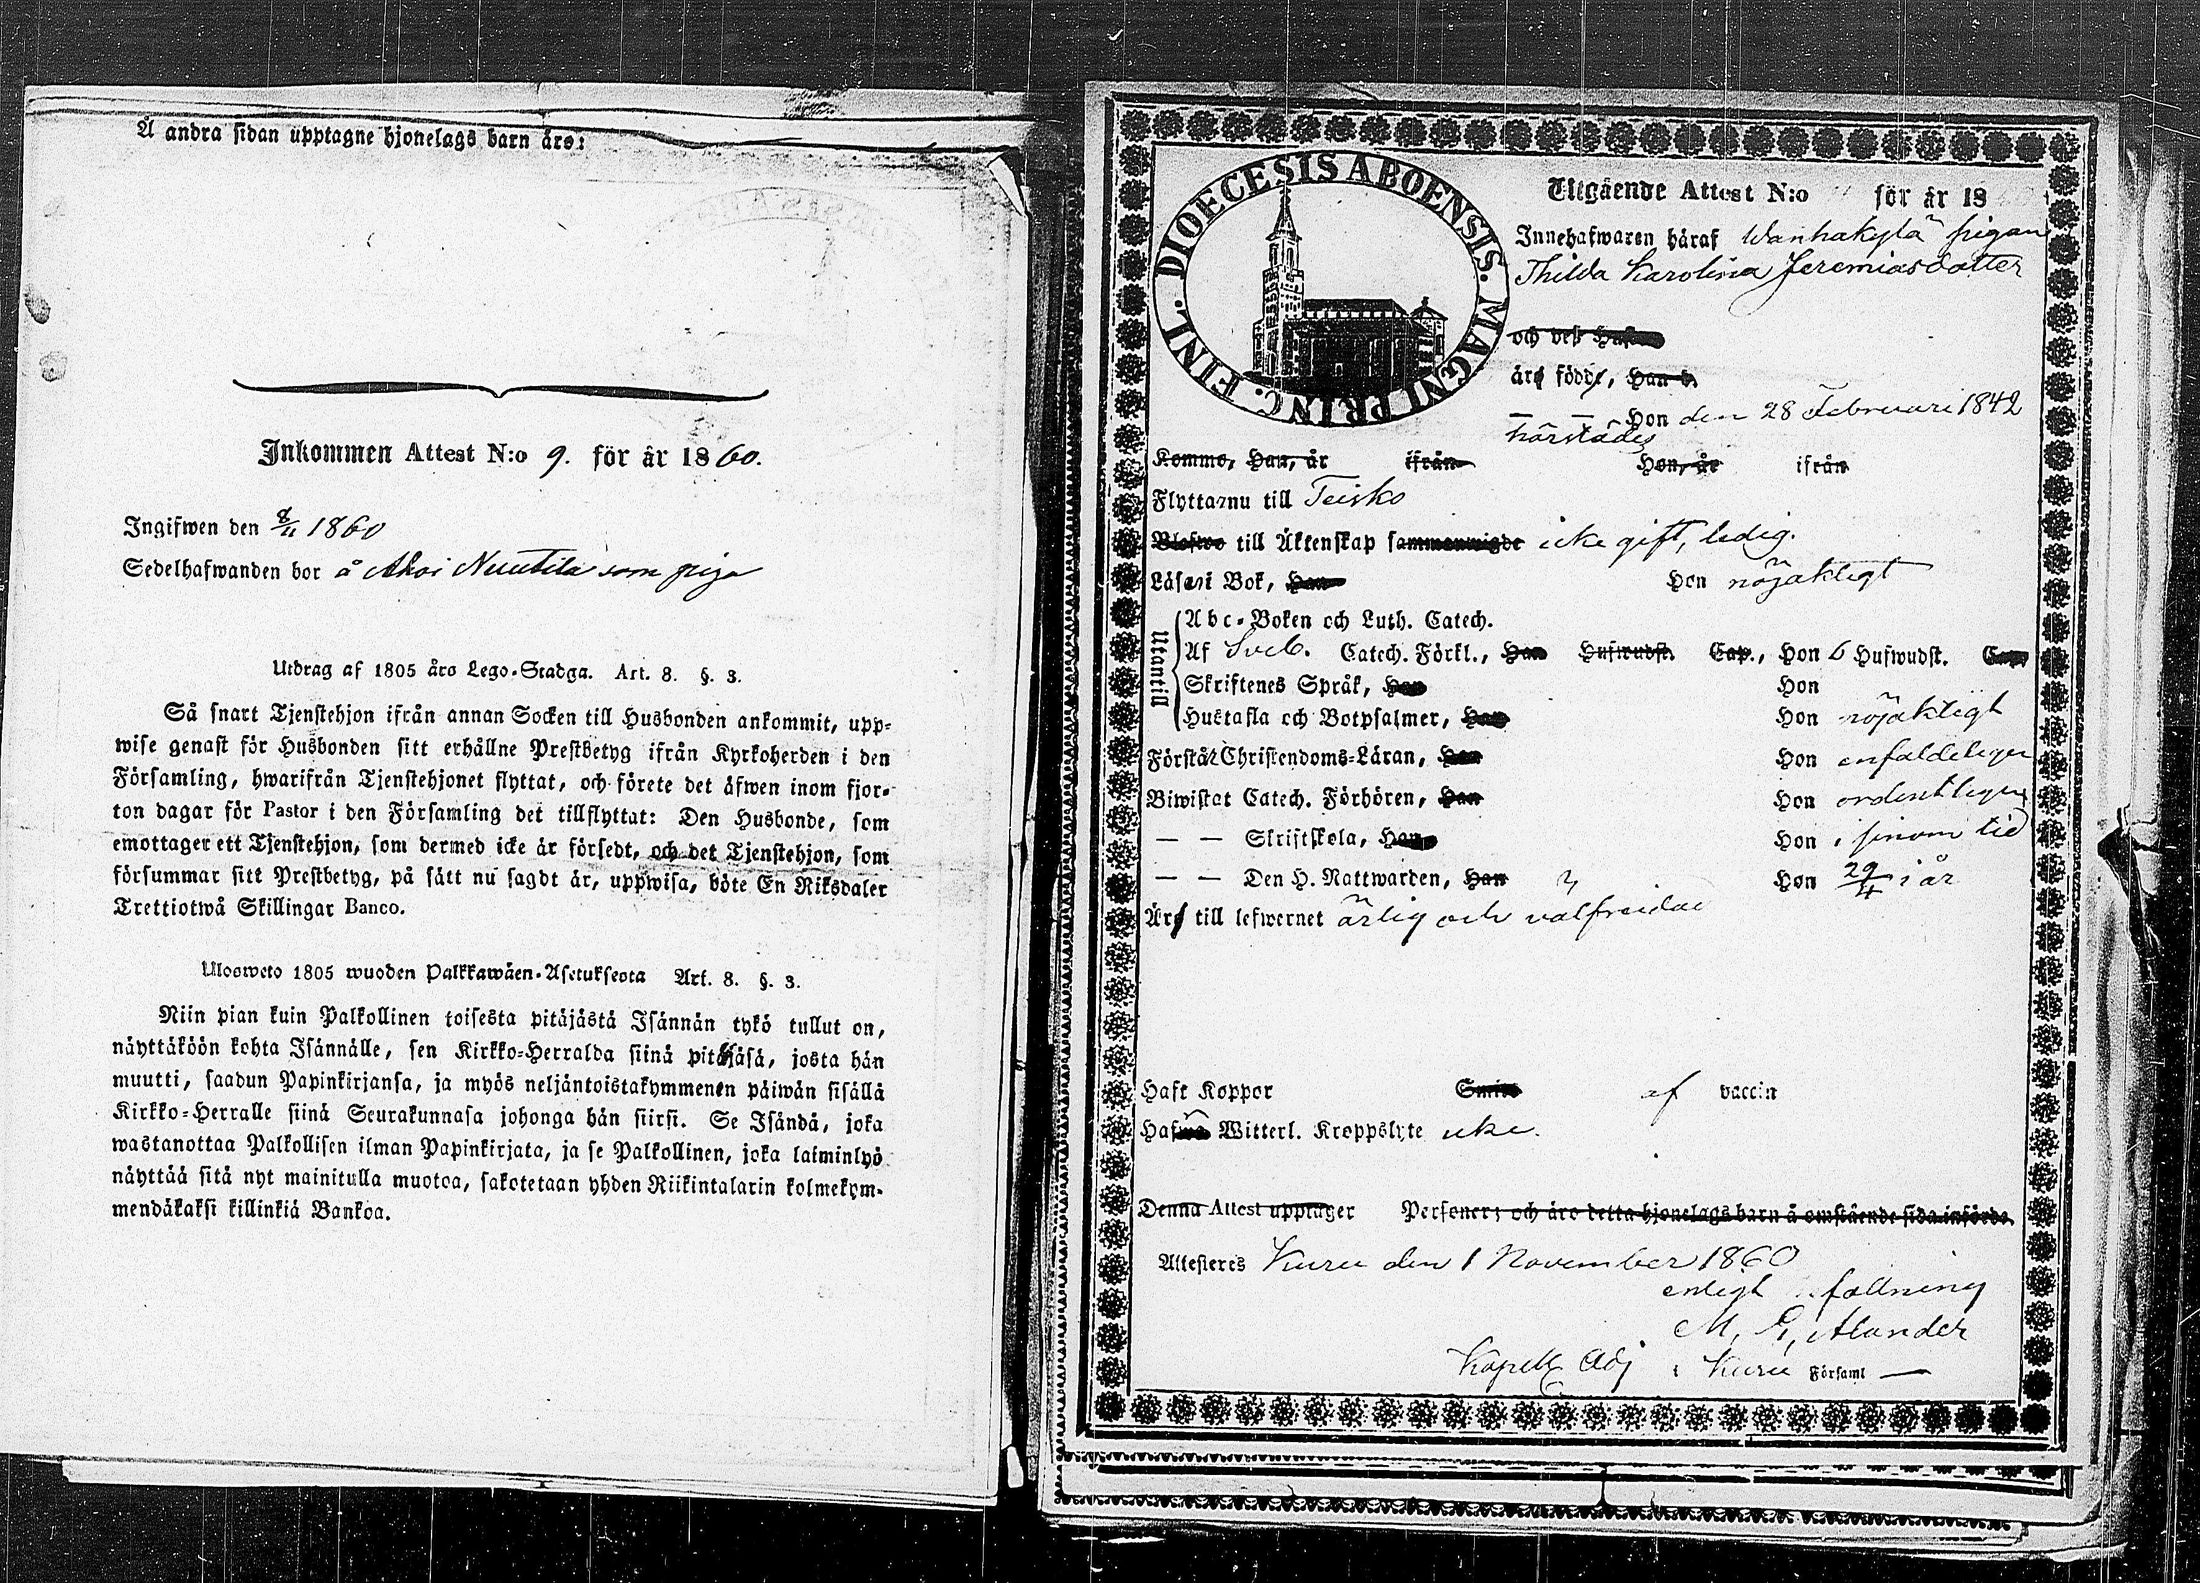 Å andra sidan upptagne hjonelags barn äro:
Inkommen Attest N:o 9. för år 1860.
Ingifwen den 8/11 1860
Sedelhafwanden bor å Ahoi Nuutila som piga
Utdrag af 1805 års Lego-Stadga. Art. 8. §. 3.
Så snart Tjenstehjon ifrån annan Socken till Husbonden ankommit, upp-
wise genast för Husbonden sitt erhållne Prestbetyg ifrån Kyrkoherden i den
Församling, hwarifrån Tjenstehjonet flyttat, och förete det äfwen inom fjor-
ton dagar för Pastor i den Församling det tillflyttat: Den Husbonde, som
emottager ett Tjenstehjon, som dermed icke är försedt, och det Tjenstehjon, som
försummar sitt Prestbetyg, på sätt nu sagdt är, uppwisa, böte En Riksdaler
Trettiotwå Skillingar Banco.
Ulosweto 1805 wuoden Palkkawäen-Asetuksesta Art. 8. §. 3.
Niin pian kuin Palkollinen toisesta pitäjästä Isännän tykö tullut on,
näyttäköön kohta Isännälle, sen Kirkko-Herralda siinä pitäjäsä, josta hän
muutti, saadun Papinkirjansa, ja myös neljäntoistakymmenen päiwän sisällä
Kirkko-Herralle siinä Seurakunnasa johonga hän siirsi. Se Isändä, joka
wastanottaa Palkollisen ilman Papinkirjata, ja se Palkollinen, joka laiminlyö
näyttää sitä nyt mainitulla muotoa, sakotetaan yhden Riikintalarin kolmekym-
mendäkaksi killinkiä Bankoa.
DIOECESIS ABOENSIS. MAGNI PRINC. FINL.
Utgående Attest N:o för år 18
Innehafwaren häraf Wanhakylä pigan
Thilda Karolina Jeremiasdotter
och deß Hustru
äro född, Han d.
— — Hon den 28 Februari 1842
härstädes
Komne, Han, år ifrån Hon, år ifrån
Flyttar nu till Teisko
Blefwo till Äktenskap sammanwigde icke gift, ledig.
Läser i Bok, Han Hon nöjaktligt
Utantill
Abc-Boken och Luth. Catech.
Af Sveb. Catech. Förkl., Han Hufwudst. Cap., Hon 6 Hufwudst. Cap.
Skriftenes Språk, Han Hon
Hustafla och Botpsalmer, Han Hon nöjaktligt
Förstår Christendoms-Läran, Han Hon enfaldeligen
Biwistat Catech. Förhören, Han Hon ordentligen
— — Skriftskola, Han Hon i sinom tid
— — Den H. Nattwarden, Han Hon 29/4 i år
Äro till lefwernet ärlig och välfrejdad
Haft Koppor Smitt af vaccin
Hafwa Witterl. Kroppslyte icke.
Denna Attest upptager Personer; och äro detta hjonelags barn å omstående sida införde.
Attesteres Kuru den 1 November 1860
enligt fallning
M. G. Alander
Kapell Adj i Kuru Församl —